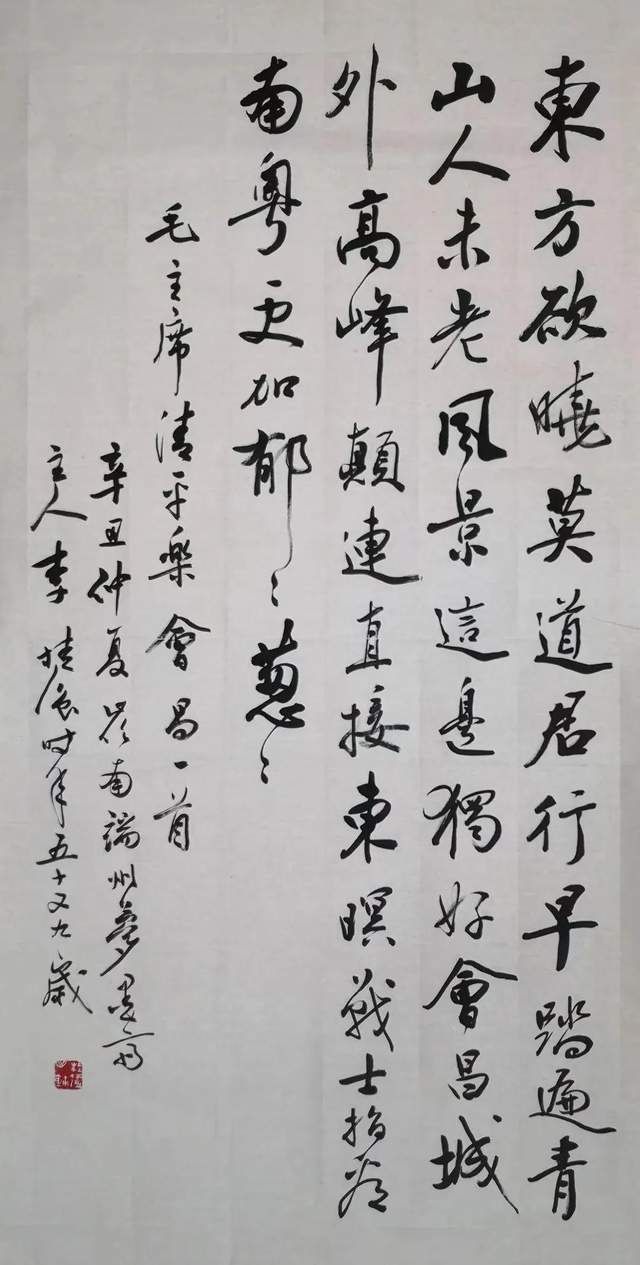 東方欲曉莫道君行早踏遍青
山人未老風景這邊獨好會昌城
外高峰顛連直接東暝戰士指看
南粵更加郁〻蔥〻
毛主席清平樂會昌一首
辛丑仲夏嶺南端州夢墨齋
主人李 時年五十又九歲